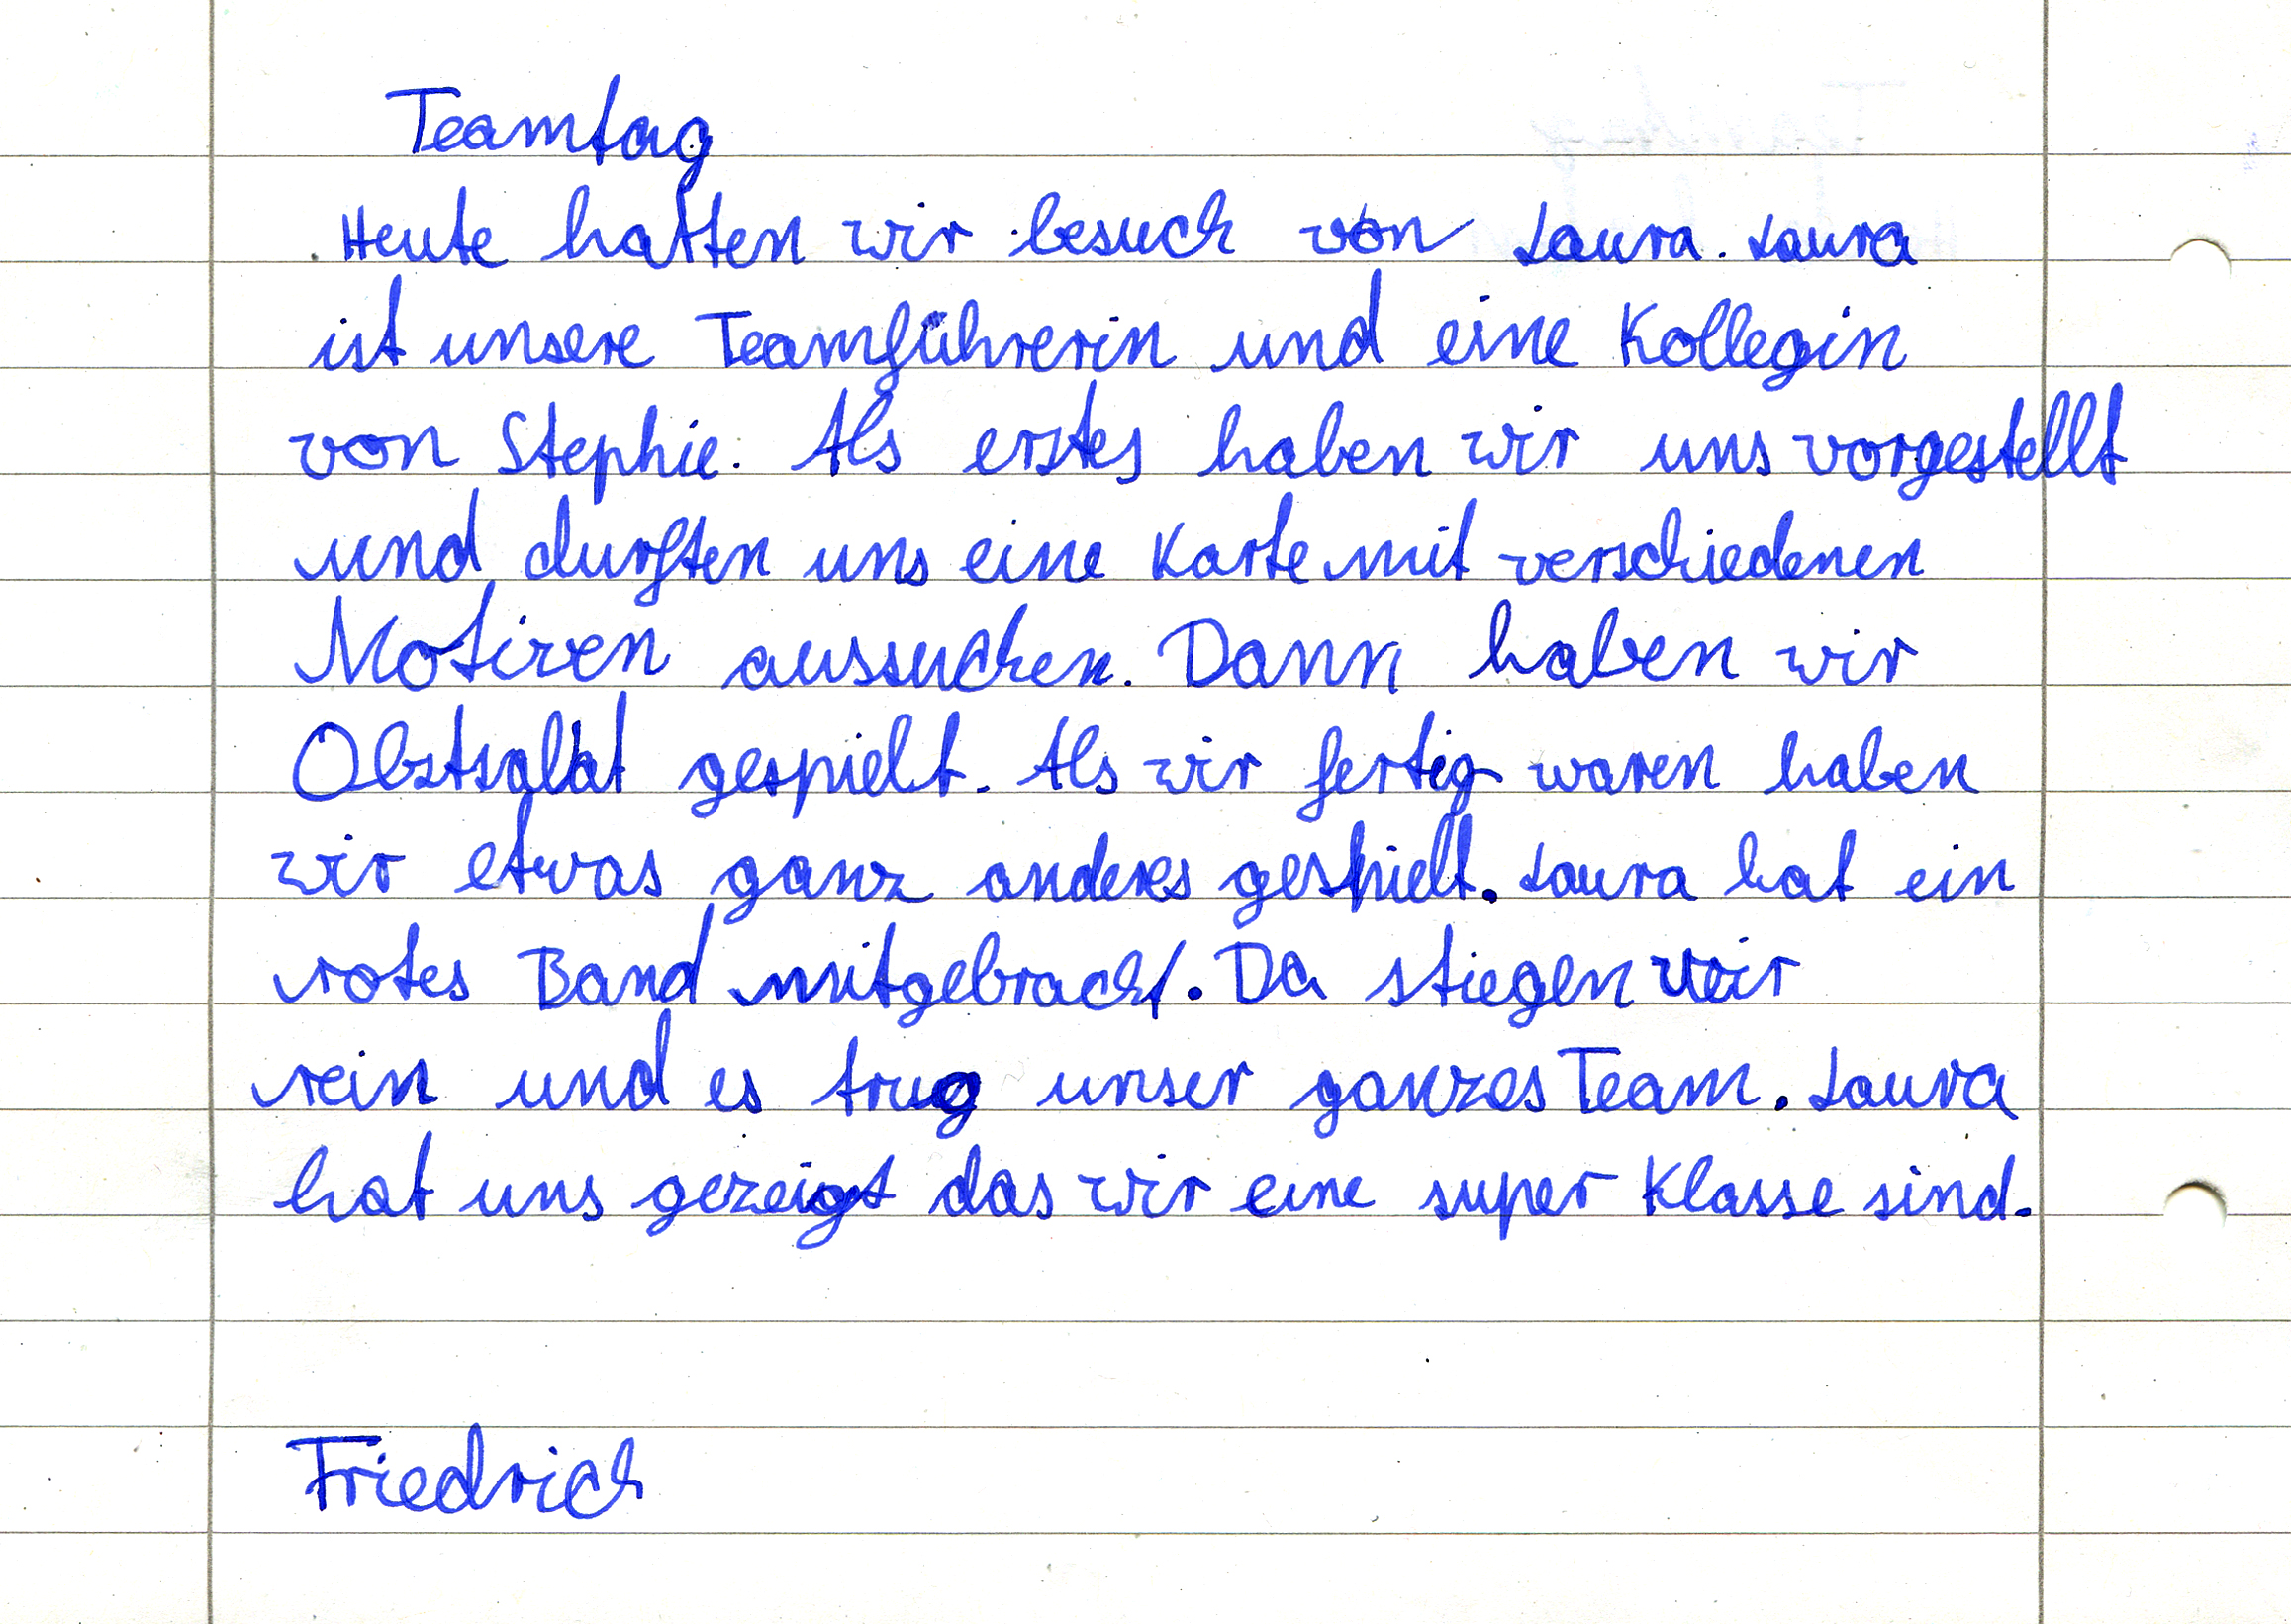 Teamtag
Heute hatten wir besuch von Laura. Laura
ist unsere Teamführerin und eine Kollegin
von Stephie. Als erstes haben wir uns vorgestellt
und durften uns eine Karte mit verschiedenen
Motiven aussuchen. Dann haben wir
Obstsalat gespielt. Als wir fertig waren haben
wir etwas ganz anderes gespielt. Laura hat ein
rotes Band mitgebracht. Da stiegen wir
rein und es trug unser ganzes Team. Laura
hat uns gezeigt das wir eine super Klasse sind.
Friedrich